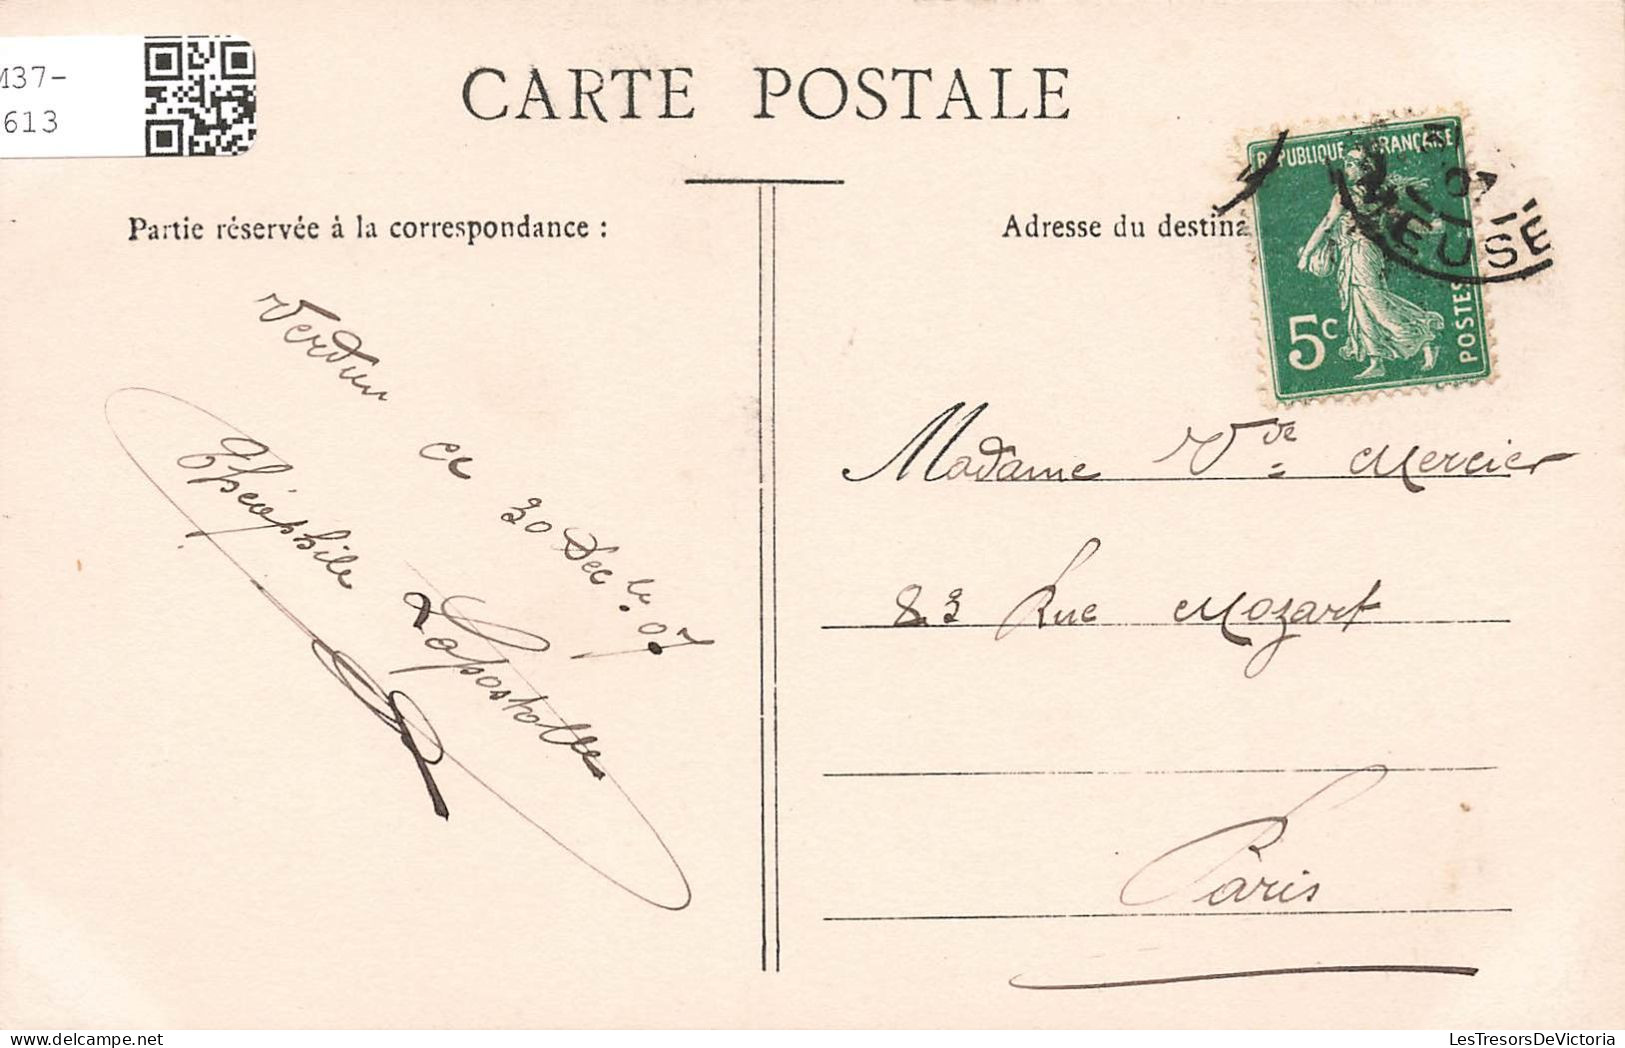 M37-
613
CARTE POSTALE
Partie réservée à la correspondance :
Verdun ce 30 Déc bre. 07
Théophile Lapostolle
Adresse du destina
REPUBLIQUE FRANÇAISE
5c
POSTES
07
MEUSE
Madame Vve Mercier
83 Rue Mozart
Paris
LesTresorsDeVictoria